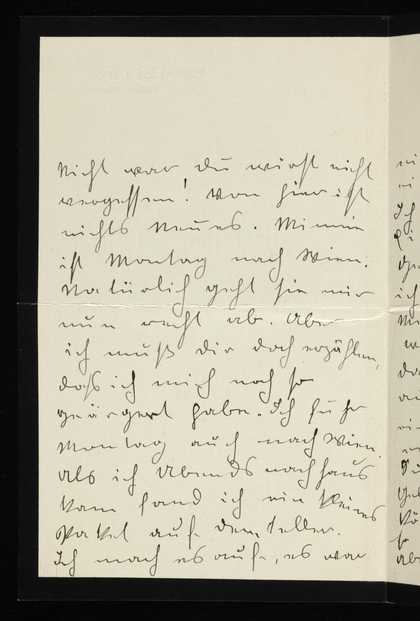 Nicht war du wirst nicht
vergessen! Von hier ist
nichts Neues. Minnie
ist Montag nach Wien.
Natürlich geht sie mir
nun recht ab. Aber
ich muß dir doch erzählen,
daß ich mich noch so
geärgert habe. Ich fuhr
Montag auch nach Wien.
als ich Abends nach haus
kam fand ich ein kleines
Paket auf dem Teller.
Ich mach es auf, es war